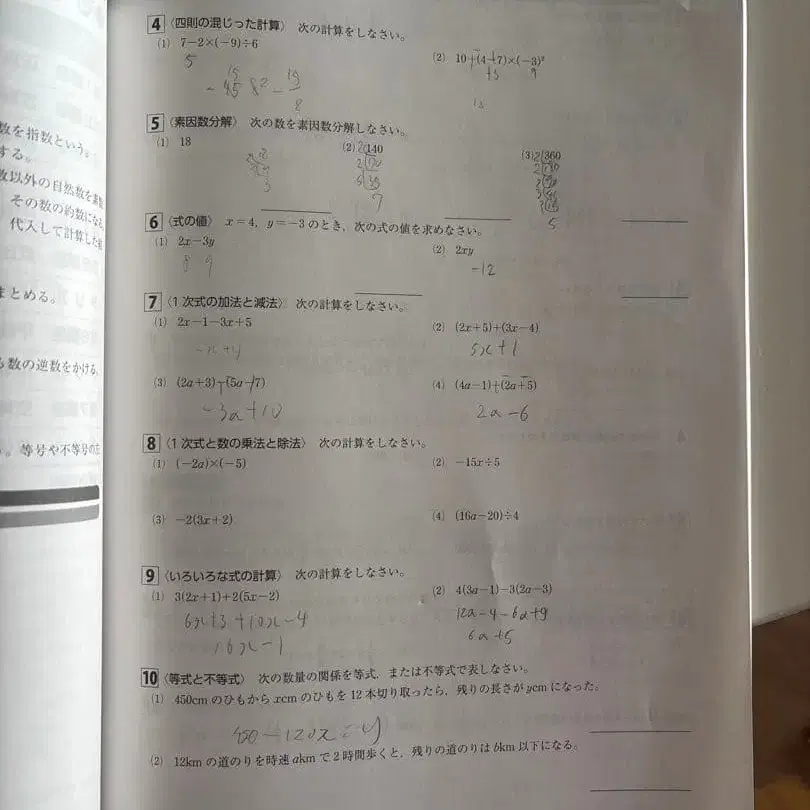 数を指数という。
する。
数以外の自然数を素
その数の約数にな
代入して計算した
まとめる。
る数の逆数をかける。
。等号や不等号の左
4 〈四則の混じった計算〉 次の計算をしなさい。
(1) 7−2×(−9)÷6
5
(2) 10−(4−7)×(−3)²
+3 9
5 〈素因数分解〉 次の数を素因数分解しなさい。
(1) 18
(2) 2 140
(3) 2 360
7
5
6 〈式の値〉 x=4, y=−3 のとき, 次の式の値を求めなさい。
(1) 2x−3y
8 9
(2) 2xy
−12
7 〈1次式の加法と減法〉 次の計算をしなさい。
(1) 2x−1−3x+5
−x+4
(2) (2x+5)+(3x−4)
5x+1
(3) (2a+3)−(5a−7)
−3a+10
(4) (4a−1)−(2a+5)
2a−6
8 〈1次式と数の乗法と除法〉 次の計算をしなさい。
(1) (−2a)×(−5)
(2) −15x÷5
(3) −2(3x+2)
(4) (16a−20)÷4
9 〈いろいろな式の計算〉 次の計算をしなさい。
(1) 3(2x+1)+2(5x−2)
6x+3+10x−4
16x−1
(2) 4(3a−1)−3(2a−3)
12a−4−6a+9
6a+5
10 〈等式と不等式〉 次の数量の関係を等式, または不等式で表しなさい。
(1) 450cmのひもからxcmのひもを12本切り取ったら, 残りの長さがycmになった。
450−120x=y
(2) 12kmの道のりを時速akmで2時間歩くと, 残りの道のりはbkm以下になる。